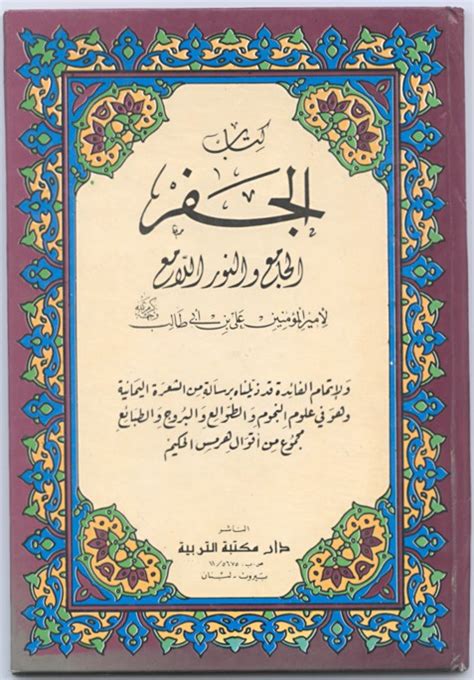 كتاب
الجفر
الجامع والنور اللامع
لأمير المؤمنين علي بن أبي طالب
ولإتمام الفائدة قد ذيلناه برسالة من الشعرة اليمانية
وهو في علوم النجوم والطوالع والبروج والطبائع
مجموع من أقوال هرمس الحكيم
الناشر
دار مكتبة التربية
ص.ب. ٥٦٧٥/١١
بيروت - لبنان